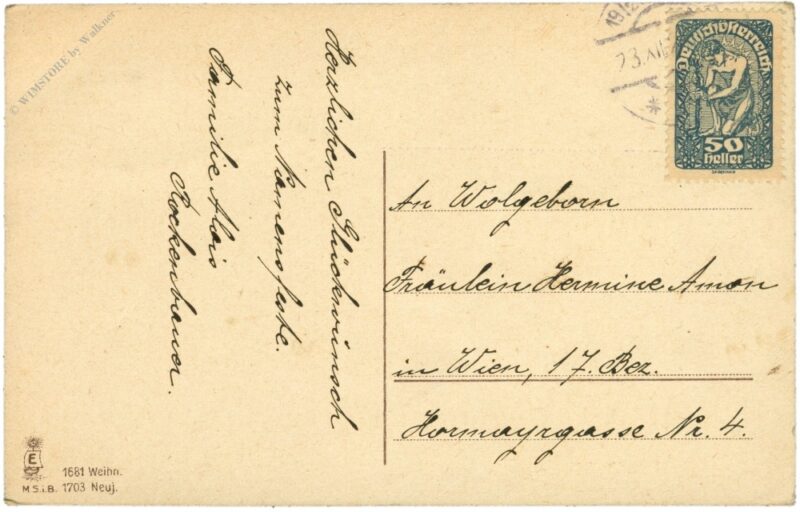 © WIMSTORE by Walkner
Herzlichen Glückwunsch
zum Namensfeste.
Familie Alois
Rockenbauer.
23.XII
Deutschösterreich
50
Heller
An Wolgeborn
Fräulein Hermine Amon
in Wien, 17. Bez.
Hormayrgasse Nr. 4.
E
1681 Weihn.
M.S.i.B. 1703 Neuj.